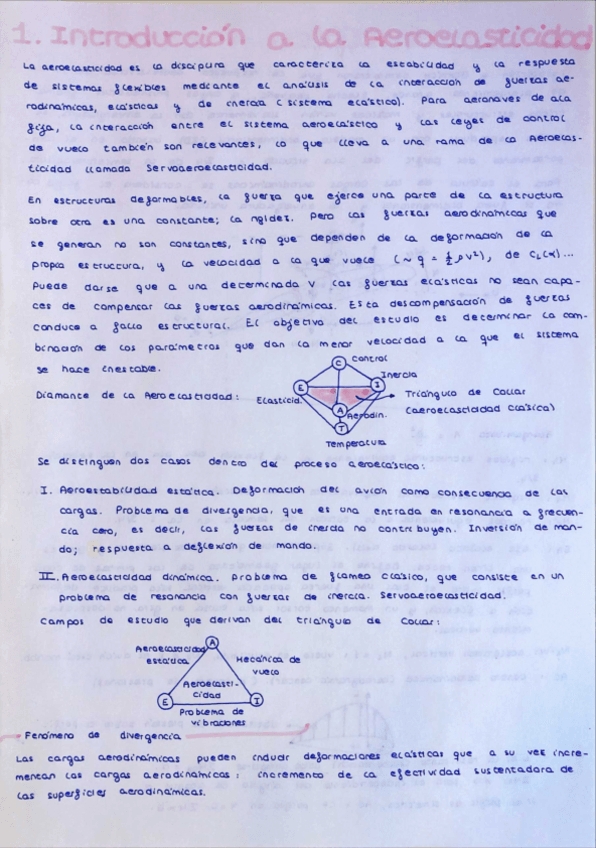 1. Introducción a la Aeroelasticidad
La aeroelasticidad es la disciplina que caracteriza la estabilidad y la respuesta
de sistemas flexibles mediante el análisis de la interacción de fuerzas ae-
rodinámicas, elásticas y de inercia (sistema elástico). Para aeronaves de ala
fija, la interacción entre el sistema aeroelástico y las leyes de control
de vuelo también son relevantes, lo que lleva a una rama de la Aeroelas-
ticidad llamada Servoaeroelasticidad.
En estructuras deformables, la fuerza que ejerce una parte de la estructura
sobre otra es una constante; la rigidez. Pero las fuerzas aerodinámicas que
se generan no son constantes, sino que dependen de la deformación de la
propia estructura, y la velocidad a la que vuele (~ q = ½ ρV²), de CL(α)...
Puede darse que a una determinada V las fuerzas elásticas no sean capa-
ces de compensar las fuerzas aerodinámicas. Esta descompensación de fuerzas
conduce a fallo estructural. El objetivo del estudio es determinar la com-
binación de los parámetros que dan la menor velocidad a la que el sistema
se hace inestable.
Diamante de la Aeroelasticidad:
C Control
E Elasticid.
I Inercia
A Aerodin.
T
Temperatura
Triángulo de Collar
(aeroelasticidad clásica)
Se distinguen dos casos dentro del proceso aeroelástico:
I. Aeroestabilidad estática. Deformación del avión como consecuencia de las
cargas. Problema de divergencia, que es una entrada en resonancia a frecuen-
cia cero, es decir, las fuerzas de inercia no contribuyen. Inversión de man-
do; respuesta a deflexión de mando.
II. Aeroelasticidad dinámica. Problema de flameo clásico, que consiste en un
problema de resonancia con fuerzas de inercia. Servoaeroelasticidad.
Campos de estudio que derivan del triángulo de Collar:
A
Aeroelasticidad
estática
Mecánica de
vuelo
Aeroelasti-
cidad
E
I
Problema de
vibraciones
Fenómeno de divergencia
Las cargas aerodinámicas pueden inducir deformaciones elásticas que a su vez incre-
mentan las cargas aerodinámicas: incremento de la efectividad sustentadora de
las superficies aerodinámicas.